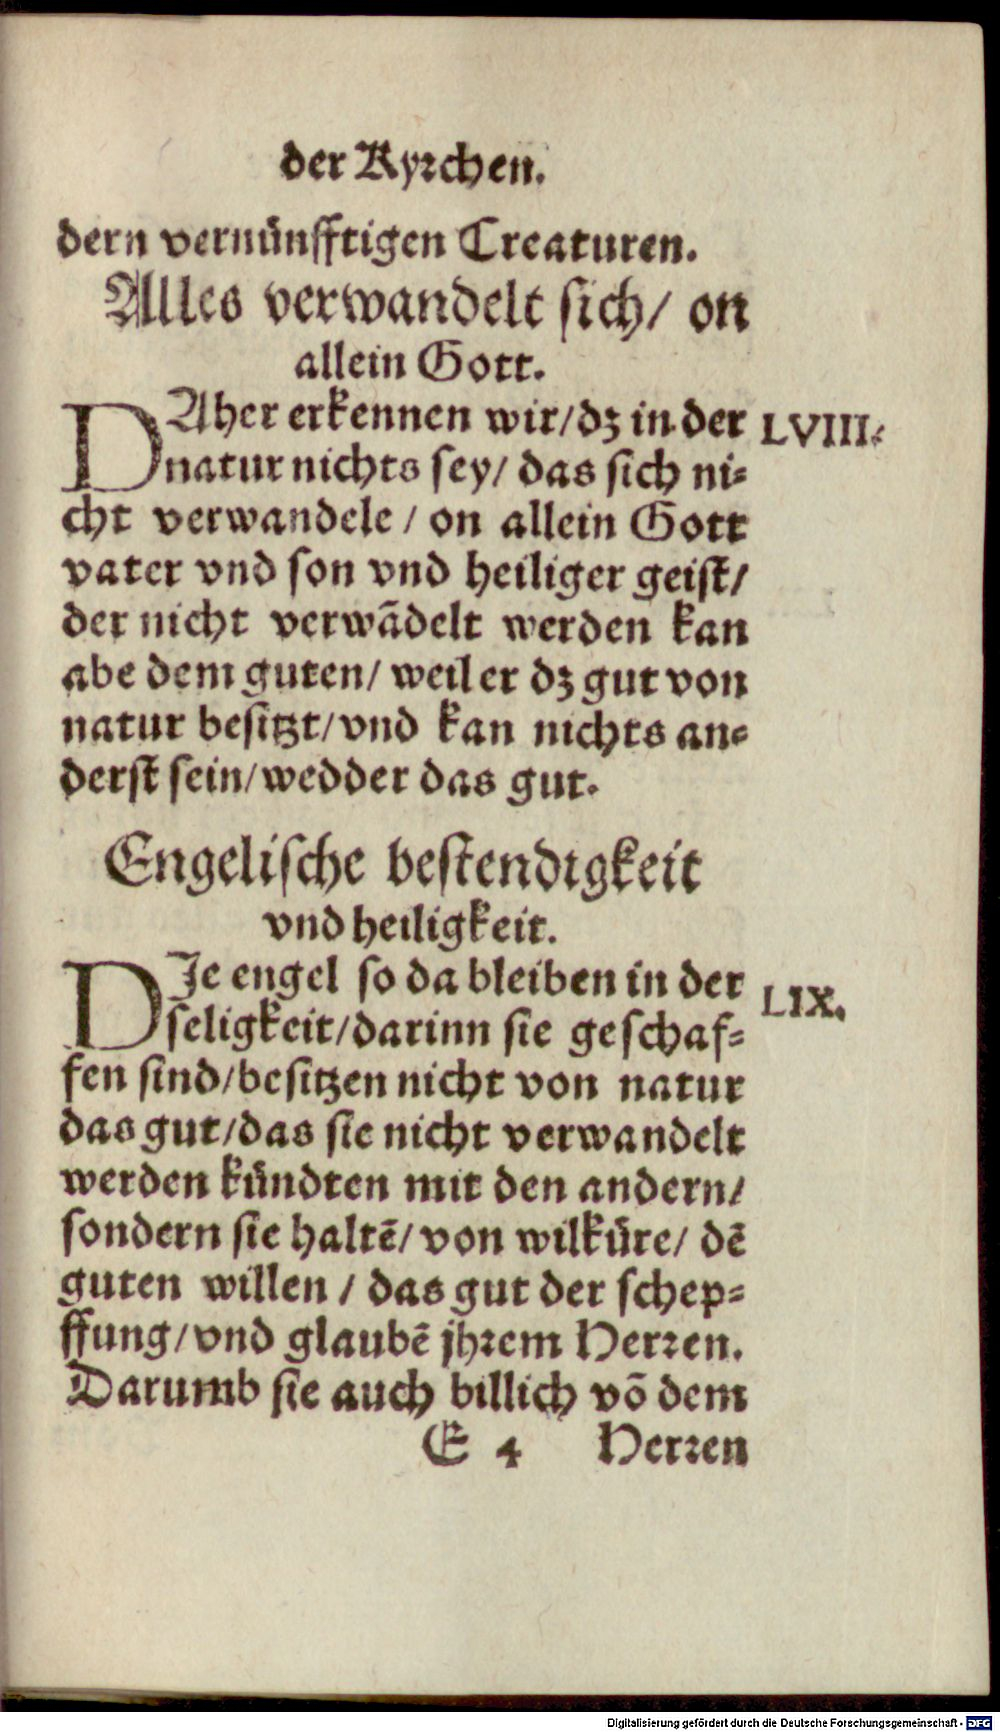 der Kyrchen.
dern vernünfftigen Creaturen.
Alles verwandelt sich/ on
allein Gott.
DAher erkennen wir/ dz in der LVIII.
natur nichts sey/ das sich ni-
cht verwandele / on allein Gott
vater vnd son vnd heiliger geist/
der nicht verwãdelt werden kan
abe dem guten/ weil er dz gut von
natur besitzt/ vnd kan nichts an-
derst sein/ wedder das gut.
Engelische bestendigkeit
vnd heiligkeit.
DJe engel so da bleiben in der LIX.
seligkeit/ darinn sie geschaf-
fen sind/ besitzen nicht von natur
das gut/ das sie nicht verwandelt
werden kündten mit den andern/
sondern sie haltẽ/ von wilküre/ dẽ
guten willen / das gut der schep-
ffung/ vnd glaubẽ jhrem Herren.
Darumb sie auch billich võ dem
E 4 Herren
Digitalisierung gefördert durch die Deutsche Forschungsgemeinschaft - DFG